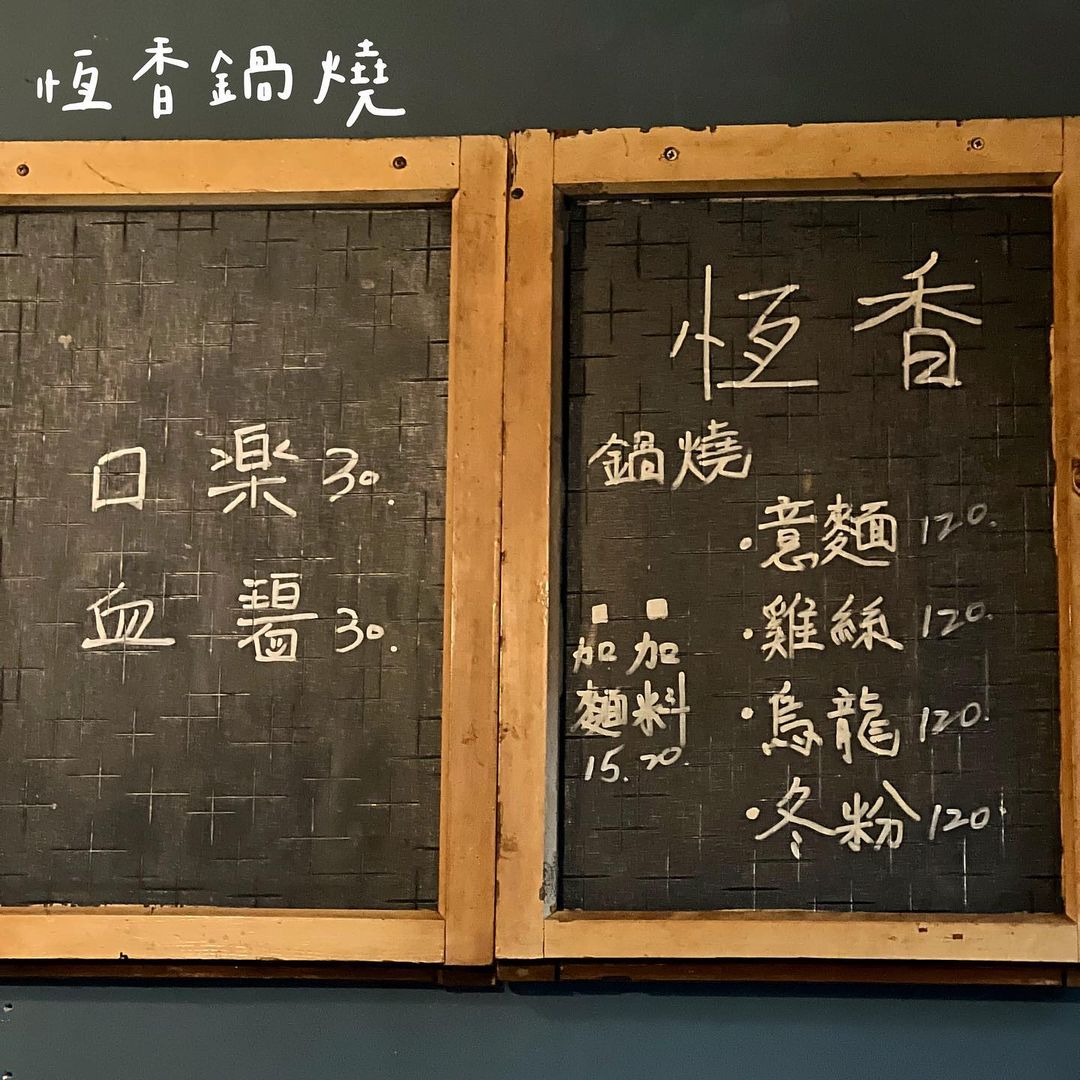 恆香鍋燒
日楽 30.
血碧 30.
恆香
鍋燒
·意麵 120.
·雞絲 120.
·烏龍 120.
·冬粉 120.
加麵 15.
加料 20.